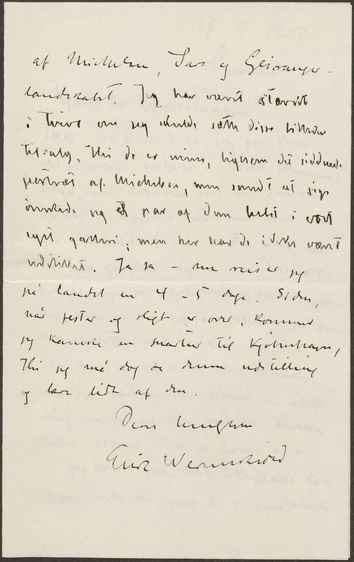 af Michelsen, Lars og Geiranger-
landskabet. Jeg har været stærkt
i tvivl om jeg skulde sætte disse billeder
til salg, thi de er mine, ligesom det siddende
portræt af Michelsen, men sandt at sige
ønskede jeg et par af dem helst i vort
eget galleri; men her har de ikke været
udstillet. Ja ja – nu reiser jeg
på landet en 4 – 5 dage. Siden,
når fester og sligt er over, kommer
jeg kanske en snartur til Kjøbenhavn,
thi jeg må dog se denne udstilling
og lære lidt af den.
Deres hengivne
Erik Werenskiold